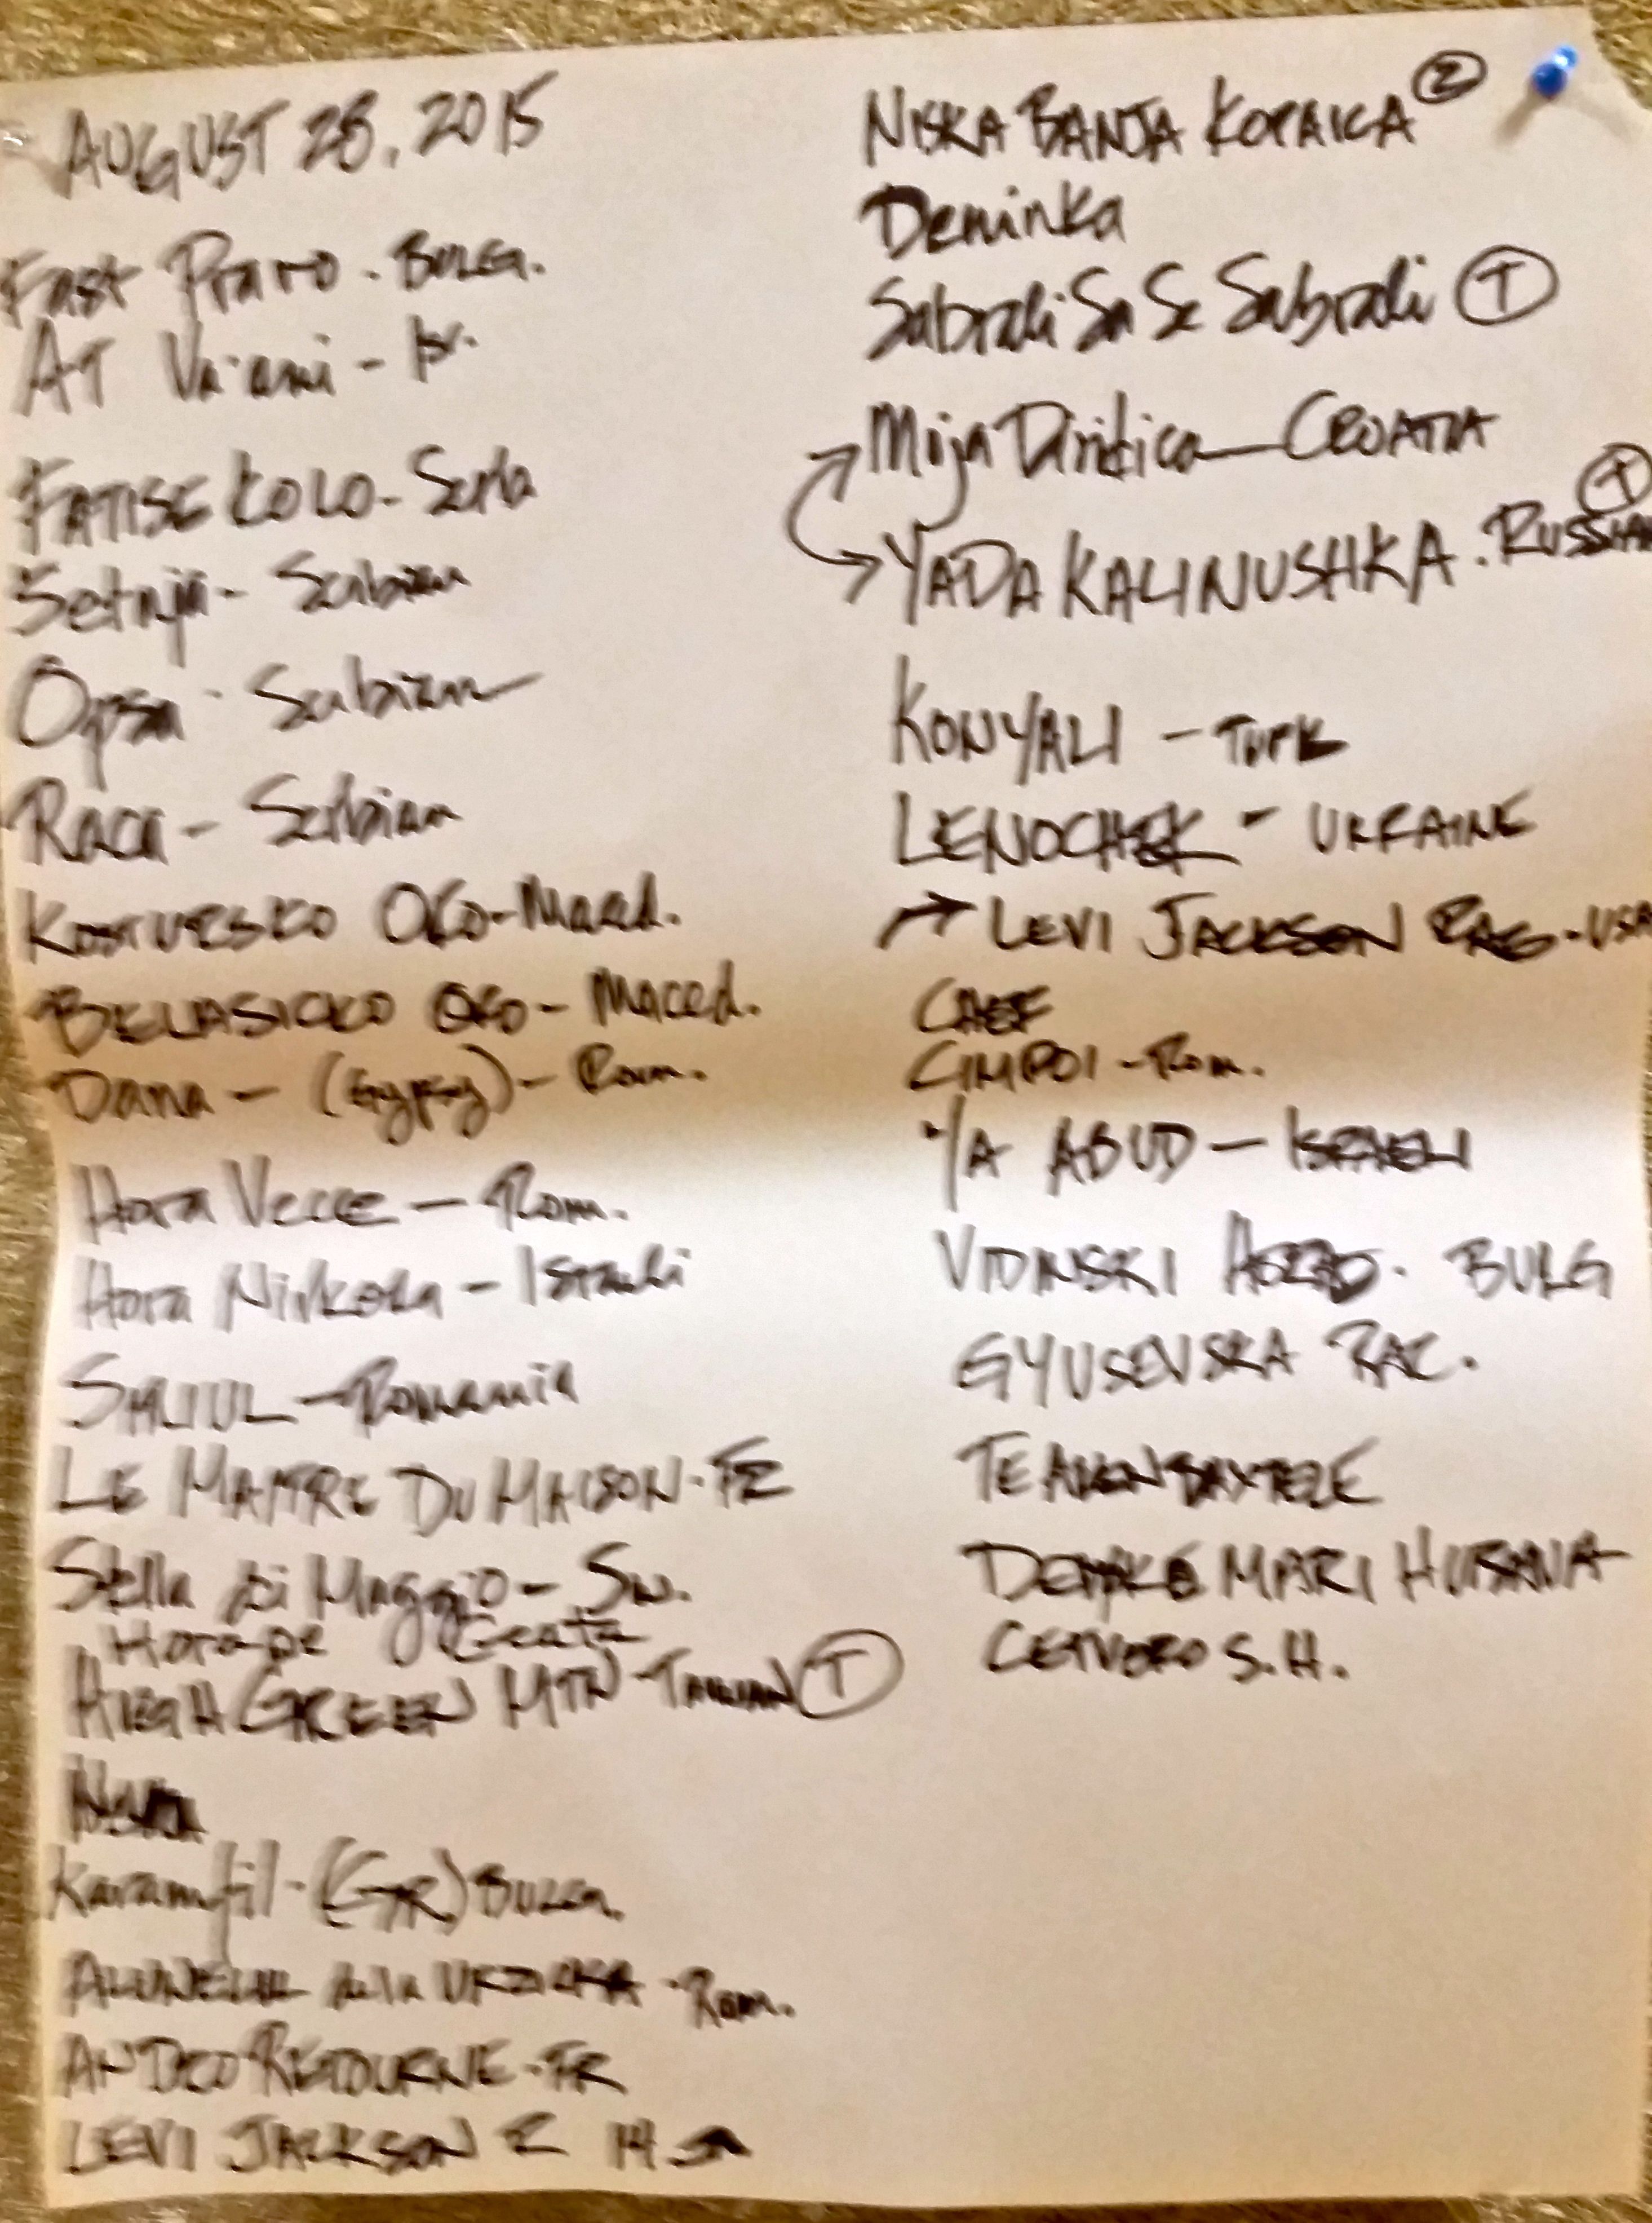 AUGUST 28, 2015
Fast Pravo - BULG.
AT Va'ani - Isr.
FATISE KOLO - Serb
Setnja - Serbian
Opsa - Serbian
Raca - Serbian
KOSTURSKO ORO - Maced.
BELASICKO ORO - Maced.
Dana - (Gypsy) - Rom.
Hora Veche - Rom.
Hora Nirkoda - Israeli
SMLIUL - Romania
LE MAITRE DU MAISON - FR
Stella di Maggio - Sw.
Hora pe Geata
HIGH GREEN MTN - TAIWAN T
Karamfil - (GR) BULG.
ALUNELUL de la URZICKA - Rom.
AN DRO RETOURNE - FR
LEVI JACKSON R 14
NISKA BANJA KOPAICA 2
Deninka
Sabrali Sa Se Sabrali T
Moja Diridica - CROATIA
YADA KALINUSHKA . RUSSIAN T
KONYALI - TURK
LENOCHEK - UKRAINE
→ LEVI JACKSON RAG - USA
CHEF
CIMPOI - Rom.
YA ABUD - ISRAELI
VIDINSKI HORO - BULG
GYUSEVSKA RAC.
TE AVEN BAXTELE
MARI HUBAVA
CETVORO S.H.